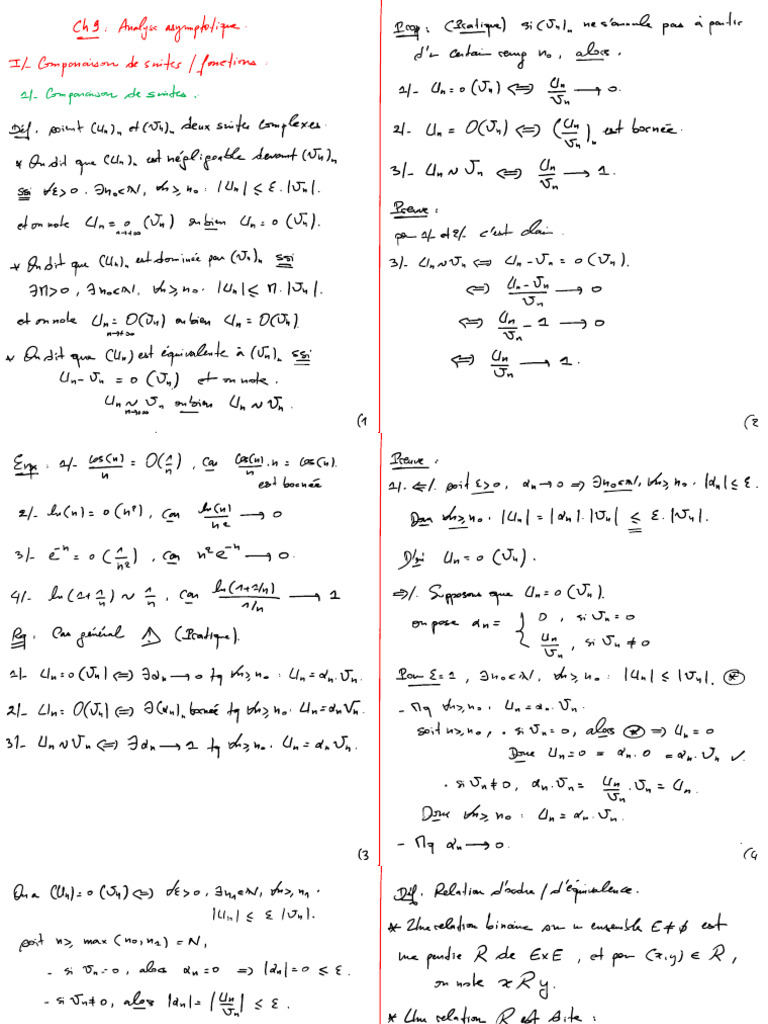 Ch 9 : Analyse asymptotique.
I/- Comparaison de suites / fonctions.
1/- Comparaison de suites.
Déf. soient (Un)n et (Vn)n deux suites complexes.
* On dit que (Un)n est négligeable devant (Vn)n
ssi ∀ε>0, ∃n₀∈ℕ, ∀n≥n₀ : |Un| ≤ ε.|Vn|.
et on note Un = o(Vn) n→+∞ ou bien Un = o(Vn).
* On dit que (Un)n est dominée par (Vn)n ssi
∃M>0, ∃n₀∈ℕ, ∀n≥n₀ : |Un| ≤ M.|Vn|.
et on note Un = O(Vn) n→+∞ ou bien Un = O(Vn).
* On dit que (Un) est équivalente à (Vn)n ssi
Un - Vn = o(Vn) et on note.
Un ~ Vn n→+∞ ou bien Un ~ Vn.
(1
Prop : (Pratique) si (Vn)n ne s'annule pas à partir
d'un certain rang n₀, alors.
1/- Un = o(Vn) ⟺ Un/Vn → 0.
2/- Un = O(Vn) ⟺ (Un/Vn)n est bornée.
3/- Un ~ Vn ⟺ Un/Vn → 1.
Preuve :
par 1/- et 2/- c'est clair.
3/- Un ~ Vn ⟺ Un - Vn = o(Vn).
⟺ (Un - Vn)/Vn → 0
⟺ Un/Vn - 1 → 0
⟺ Un/Vn → 1.
(2
Exp : 1/- cos(n)/n = O(1/n), car cos(n)/n . n = cos(n).
est bornée
2/- ln(n) = o(n²), car ln(n)/n² → 0
3/- e⁻ⁿ = o(1/n²), car n²e⁻ⁿ → 0.
4/- ln(1+1/n) ~ 1/n, car ln(1+1/n)/(1/n) → 1
Rq. Cas général ⚠ (Pratique).
1/- Un = o(Vn) ⟺ ∃αn → 0 tq ∀n≥n₀ : Un = αn.Vn.
2/- Un = O(Vn) ⟺ ∃(αn)n bornée tq ∀n≥n₀ : Un = αn Vn.
3/- Un ~ Vn ⟺ ∃αn → 1 tq ∀n≥n₀ : Un = αn Vn.
(3
Preuve :
1/. ⇐/. soit ε>0, αn → 0 ⇒ ∃n₀∈ℕ, ∀n≥n₀ : |αn| ≤ ε.
Donc ∀n≥n₀ : |Un| = |αn|.|Vn| ≤ ε.|Vn|.
D'où Un = o(Vn).
⇒/. Supposons que Un = o(Vn).
on pose αn = { 0, si Vn = 0
Un/Vn, si Vn ≠ 0
Pour ε=1, ∃n₀∈ℕ, ∀n≥n₀ : |Un| ≤ |Vn|. ⊛
- Mq ∀n≥n₀ : Un = αn.Vn.
soit n≥n₀, . si Vn=0, alors ⊛ ⇒ Un = 0
Donc Un = 0 = αn.0 = αn.Vn ✓
. si Vn≠0, αn.Vn = Un/Vn . Vn = Un.
Donc ∀n≥n₀ : Un = αn.Vn.
- Mq αn → 0.
(4
On a (Un) = o(Vn) ⟺ ∀ε>0, ∃n₁∈ℕ, ∀n≥n₁ :
|Un| ≤ ε|Vn|.
soit n≥ max(n₀,n₁) = N,
- si Vn=0, alors αn=0 ⇒ |αn|=0 ≤ ε.
- si Vn≠0, alors |αn| = |Un/Vn| ≤ ε.
Déf. Relation d'ordre / d'équivalence.
* Une relation binaire sur un ensemble E≠∅ est
une partie R de E×E, et par (x,y) ∈ R,
on note x R y.
* Une relation R est dite :